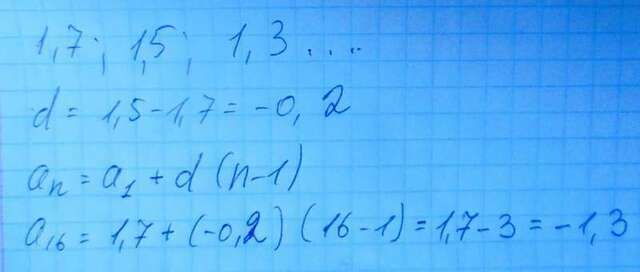 1,7; 1,5; 1,3 ....
d = 1,5 - 1,7 = -0,2
aₙ = a₁ + d (n-1)
a₁₆ = 1,7 + (-0,2) (16 - 1) = 1,7 - 3 = -1,3